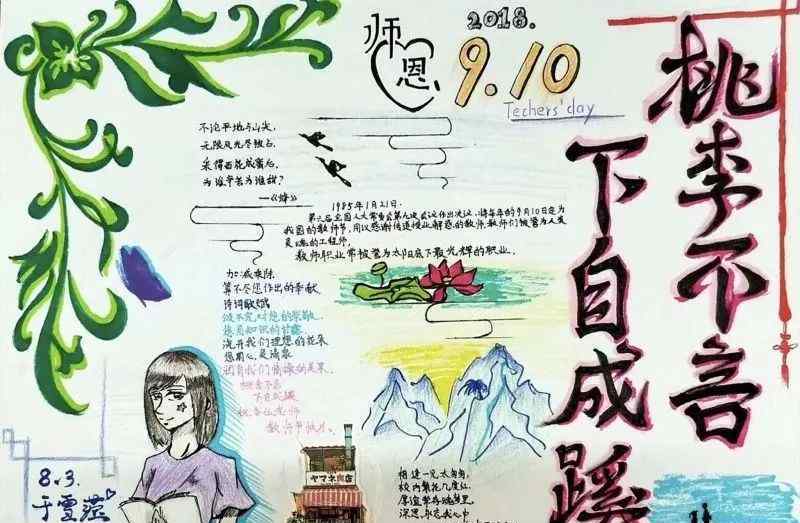 师恩
2018.
9.10
Techers'day
桃李不言
下自成蹊
不论平地与山尖,
无限风光尽被占,
采得百花成蜜后,
为谁辛苦为谁甜?
—《蜂》
1985年1月21日.
第六届全国人大常委会第九次会议作出决议,将每年的9月10日定为
我国的教师节,用以感谢传道授业解惑的教师,教师们被誉为人类
灵魂的工程师。
教师职业常被誉为太阳底下最光辉的职业。
加减乘除
算不尽您作出的奉献
诗词歌赋
颂不完对您的崇敬
您用知识的甘露
浇开我们理想的花朵
您用心灵清泉
润育我们情操的美果
桃李不言
下自成蹊
祝各位老师
教师节快乐
ヤマネ商店
校内繁花几度红
厚谊常存魂梦里
深恩永志我心中
8.3.
于雪莲